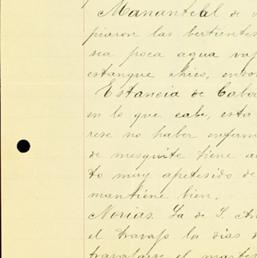 Manantelal de
piaron las bertientes
sea poca agua va
estanque chico, en
Estancia de Cabo
en lo que cabe, esta
rese no haber enferm
de mesquite tiene a
to muy apetesido de
mantiene bien.
Norias. La de S. An
el travajo la dias d
travajare el martes